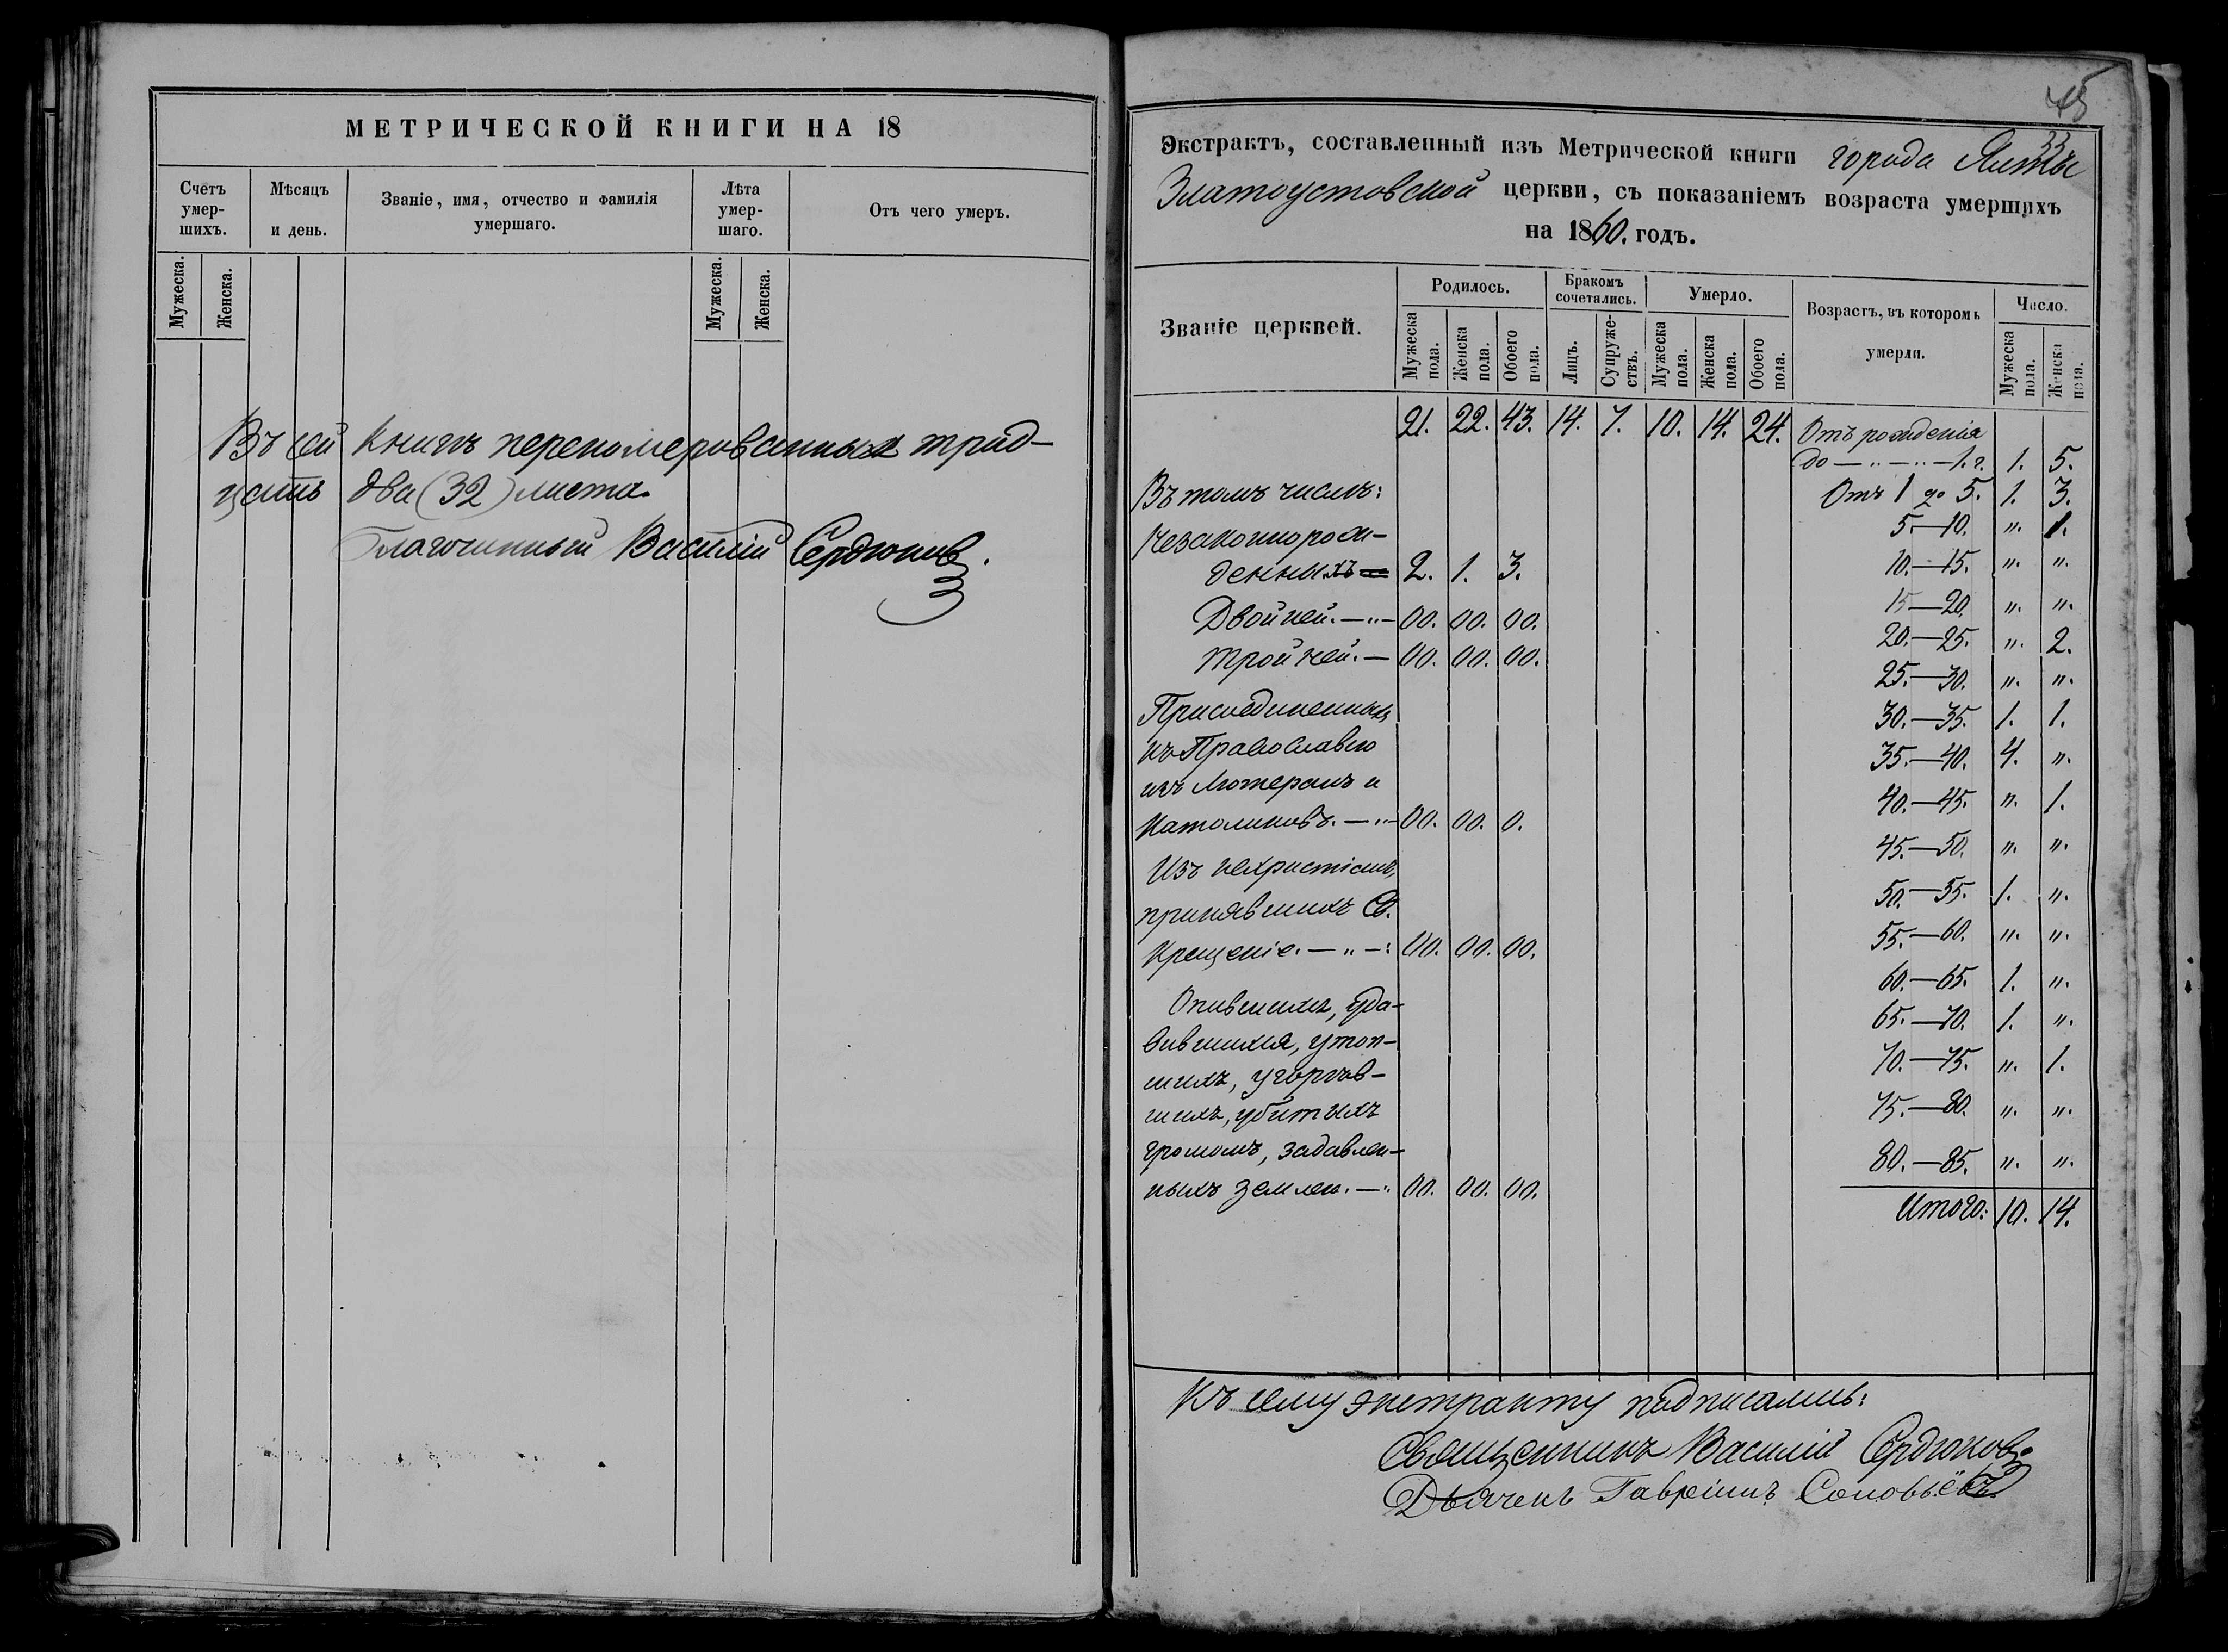 МЕТРИЧЕСКОЙ КНИГИ НА 18
Счетъ умер- шихъ.
Мѣсяцъ и день.
Званіе, имя, отчество и фамилія умершаго.
Лѣта умер- шаго.
Отъ чего умеръ.
Мужеска. Женска. Мужеска. Женска.
Въ сей книгѣ перенумерованныхъ трид-
цать два (32) листа.
Благочинный Василій Сердюковъ.
33
Экстрактъ, составленный изъ Метрической книги города Ялты
Златоустовской церкви, съ показаніемъ возраста умершихъ
на 1860. годъ.
Званіе церквей.
Родилось.
Бракомъ сочетались.
Умерло.
Возрастъ, въ которомъ умерли.
Число.
Мужеска пола. Женска пола. Обоего пола. Лицъ. Супруже- ствъ. Мужеска пола. Женска пола. Обоего пола. Мужеска пола. Женска пола.
21. 22. 43. 14. 7. 10. 14. 24. Отъ рожденія
до — „ — „ — 1. г. 1. 5.
Въ томъ числѣ: Отъ 1 до 5. 1. 3.
Незаконнорож- 5.—10. „. 1.
денныхъ — 2. 1. 3. 10.—15. „. „.
Двойней. — „ — 00. 00. 00. 15—20. „. „.
Тройней. — 00. 00. 00. 20.—25. „. 2.
25.—30. „. „.
Присоединенныхъ 30.—35. 1. 1.
къ Православію 35.—40. 4. „.
изъ Лютеранъ и 40.—45. „. 1.
Католиковъ. — „ — 00. 00. 0.
45.—50. „. „.
Изъ нехристіанъ,
принявшихъ Св. 50.—55. 1. „.
Крещеніе. — „ —: 00. 00. 00. 55.—60. „. „.
60.—65. 1. „.
Опившихъ, уда- 65.—70. 1. „.
вившихся, утоп-
шихъ, угорѣв- 70.—75. „. 1.
шихъ, убитыхъ 75.—80. „. „.
громомъ, задавлен- 80.—85. „. „.
ныхъ землею. — „ 00. 00. 00.
Итого: 10. 14.
Къ сему экстракту подписались:
Священникъ Василій Сердюковъ
Дьячекъ Гавріилъ Соловьёвъ